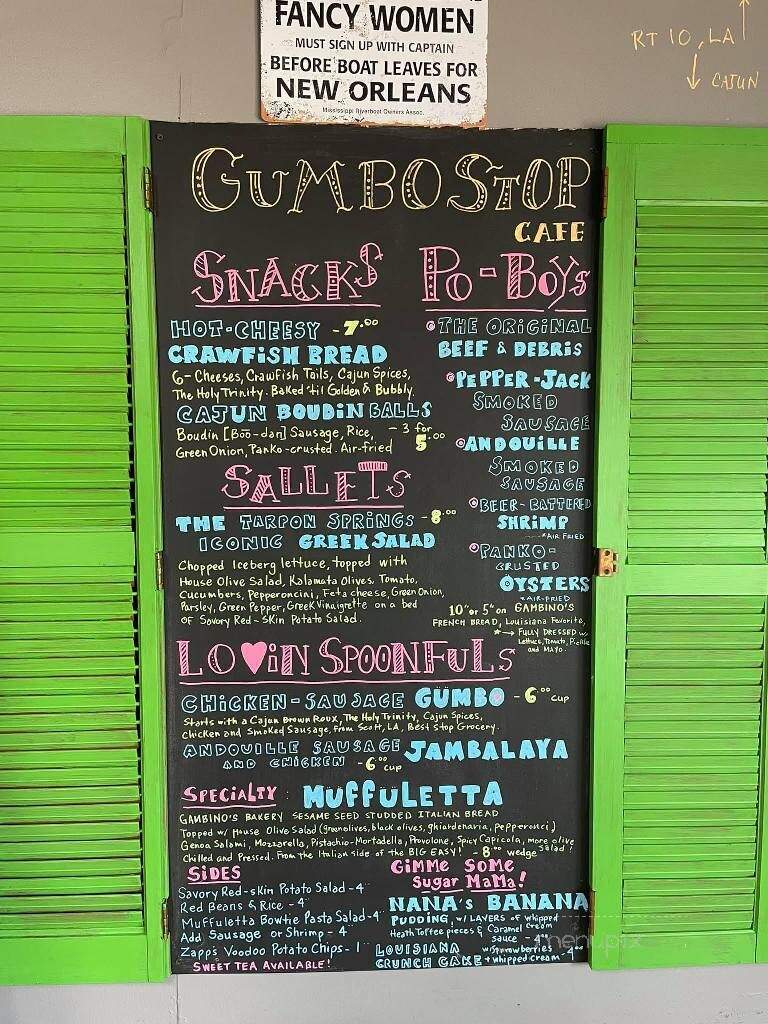 FANCY WOMEN
MUST SIGN UP WITH CAPTAIN
BEFORE BOAT LEAVES FOR
NEW ORLEANS
Mississippi Riverboat Owners Assoc.
RT 10, LA
CAJUN
GUMBO STOP
CAFE
SNACKS
HOT-CHEESY - 7.00
CRAWFISH BREAD
6- Cheeses, Crawfish Tails, Cajun Spices,
The Holy Trinity. Baked 'til Golden & Bubbly.
CAJUN BOUDIN BALLS
Boudin [Boo-dan] Sausage, Rice, - 3 for
Green Onion, Panko-crusted. Air-fried 5.00
SALLETS
THE TARPON SPRINGS - 8.00
ICONIC GREEK SALAD
Chopped Iceberg lettuce, topped with
House Olive Salad, Kalamata Olives, Tomato,
Cucumbers, Pepperoncini, Feta cheese, Green Onion,
Parsley, Green Pepper, Greek Vinaigrette on a bed
of Savory Red-Skin Potato Salad.
PO-BOYS
THE ORIGINAL
BEEF & DEBRIS
PEPPER-JACK
SMOKED
SAUSAGE
ANDOUILLE
SMOKED
SAUSAGE
BEER-BATTERED
SHRIMP
*AIR FRIED
PANKO-
CRUSTED
OYSTERS
*AIR-FRIED
10" or 5" on GAMBINO'S
FRENCH BREAD, Louisiana Favorite,
* → FULLY DRESSED w/
Lettuce, Tomato, Pickle
and MAYO.
LOVIN SPOONFULS
CHICKEN-SAUSAGE GUMBO - 6.00 cup
Starts with a Cajun Brown Roux, The Holy Trinity, Cajun Spices,
Chicken and Smoked Sausage, From Scott, LA, Best Stop Grocery.
ANDOUILLE SAUSAGE JAMBALAYA
AND CHICKEN - 6.00 cup
SPECIALTY MUFFULETTA
GAMBINO'S BAKERY SESAME SEED STUDDED ITALIAN BREAD
Topped w/ House Olive Salad (greenolives, black olives, ghiardenaria, pepperonci)
Genoa Salami, Mozzarella, Pistachio-Mortadella, Provolone, Spicy Capicola, more olive salad!
Chilled and Pressed. From the Italian side of the BIG EASY! - 8.00 wedge
SIDES
Savory Red-skin Potato Salad - 4
Red Beans & Rice - 4
Muffuletta Bowtie Pasta Salad - 4
Add Sausage or Shrimp - 4
Zapp's Voodoo Potato Chips - 1
SWEET TEA AVAILABLE!
GIMME SOME
Sugar MaMa!
NANA'S BANANA
PUDDING, w/ LAYERS of whipped cream
Heath Toffee pieces & Caramel
sauce - 4
LOUISIANA w/strawberries
CRUNCH CAKE + whipped cream - 4
menupix